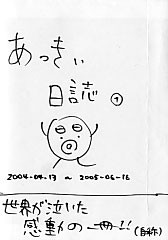 あっきぃ
日誌 ①
2004-04-13 ~ 2005-06-16
世界が泣いた
感動の一冊!! (自称)